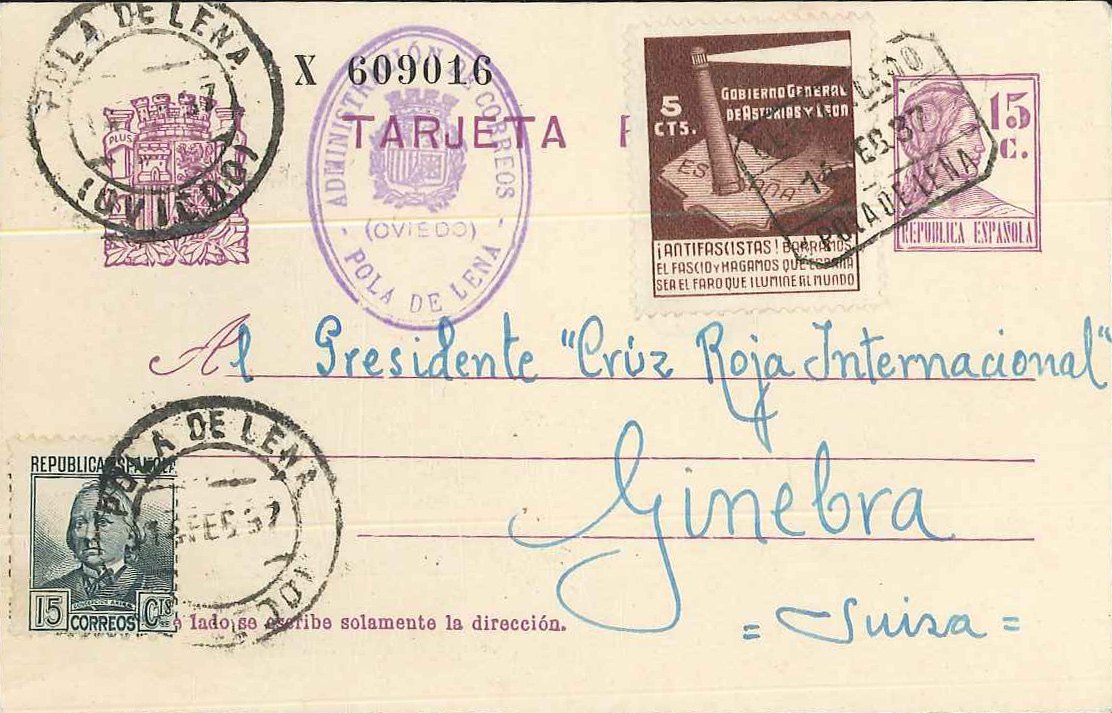 POLA DE LENA
(OVIEDO)
PLUS
X 609016
TARJETA P
ADMINISTRACIÓN DE CORREOS
(OVIEDO)
- POLA DE LENA -
5
CTS.
GOBIERNO GENERAL
DE ASTURIAS Y LEON
ESPAÑA
¡ANTIFASCISTAS! BARRAMOS
EL FASCIO Y HAGAMOS QUE ESPAÑA
SEA EL FARO QUE ILUMINE AL MUNDO
CERTIFICADO
14 FEB. 37
POLA DE LENA
15
C.
REPUBLICA ESPAÑOLA
Al Presidente "Crúz Roja Internacional"
Ginebra
= Suiza =
REPUBLICA ESPAÑOLA
POLA DE LENA
FEB 37
15 CTS
CORREOS
e lado se escribe solamente la dirección.